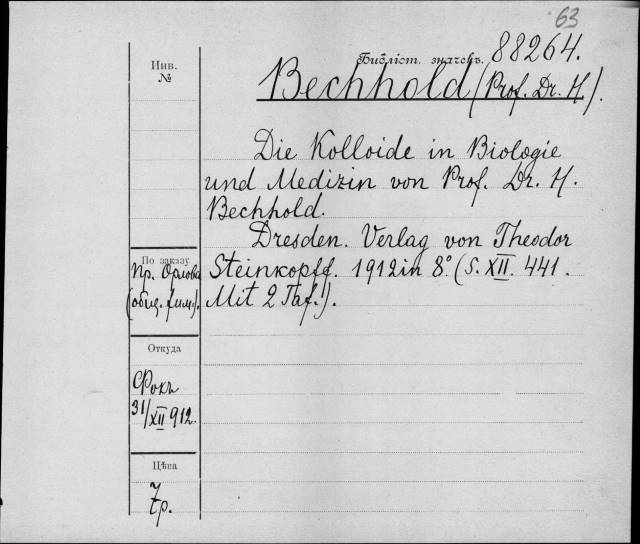 63
Библіот. значекъ. 88264.
Инв.
№
Bechhold (Prof. Dr. H.).
Die Kolloide in Biologie
und Medizin von Prof. Dr. H.
Bechhold.
Dresden. Verlag von Theodor
Steinkopff. 1912 in 8° (S. XII. 441.
Mit 2 Taf.).
По заказу
Пр. Орлова
(общ. хим.).
Откуда
Фокъ
31/XII 912.
Цѣна
7р.